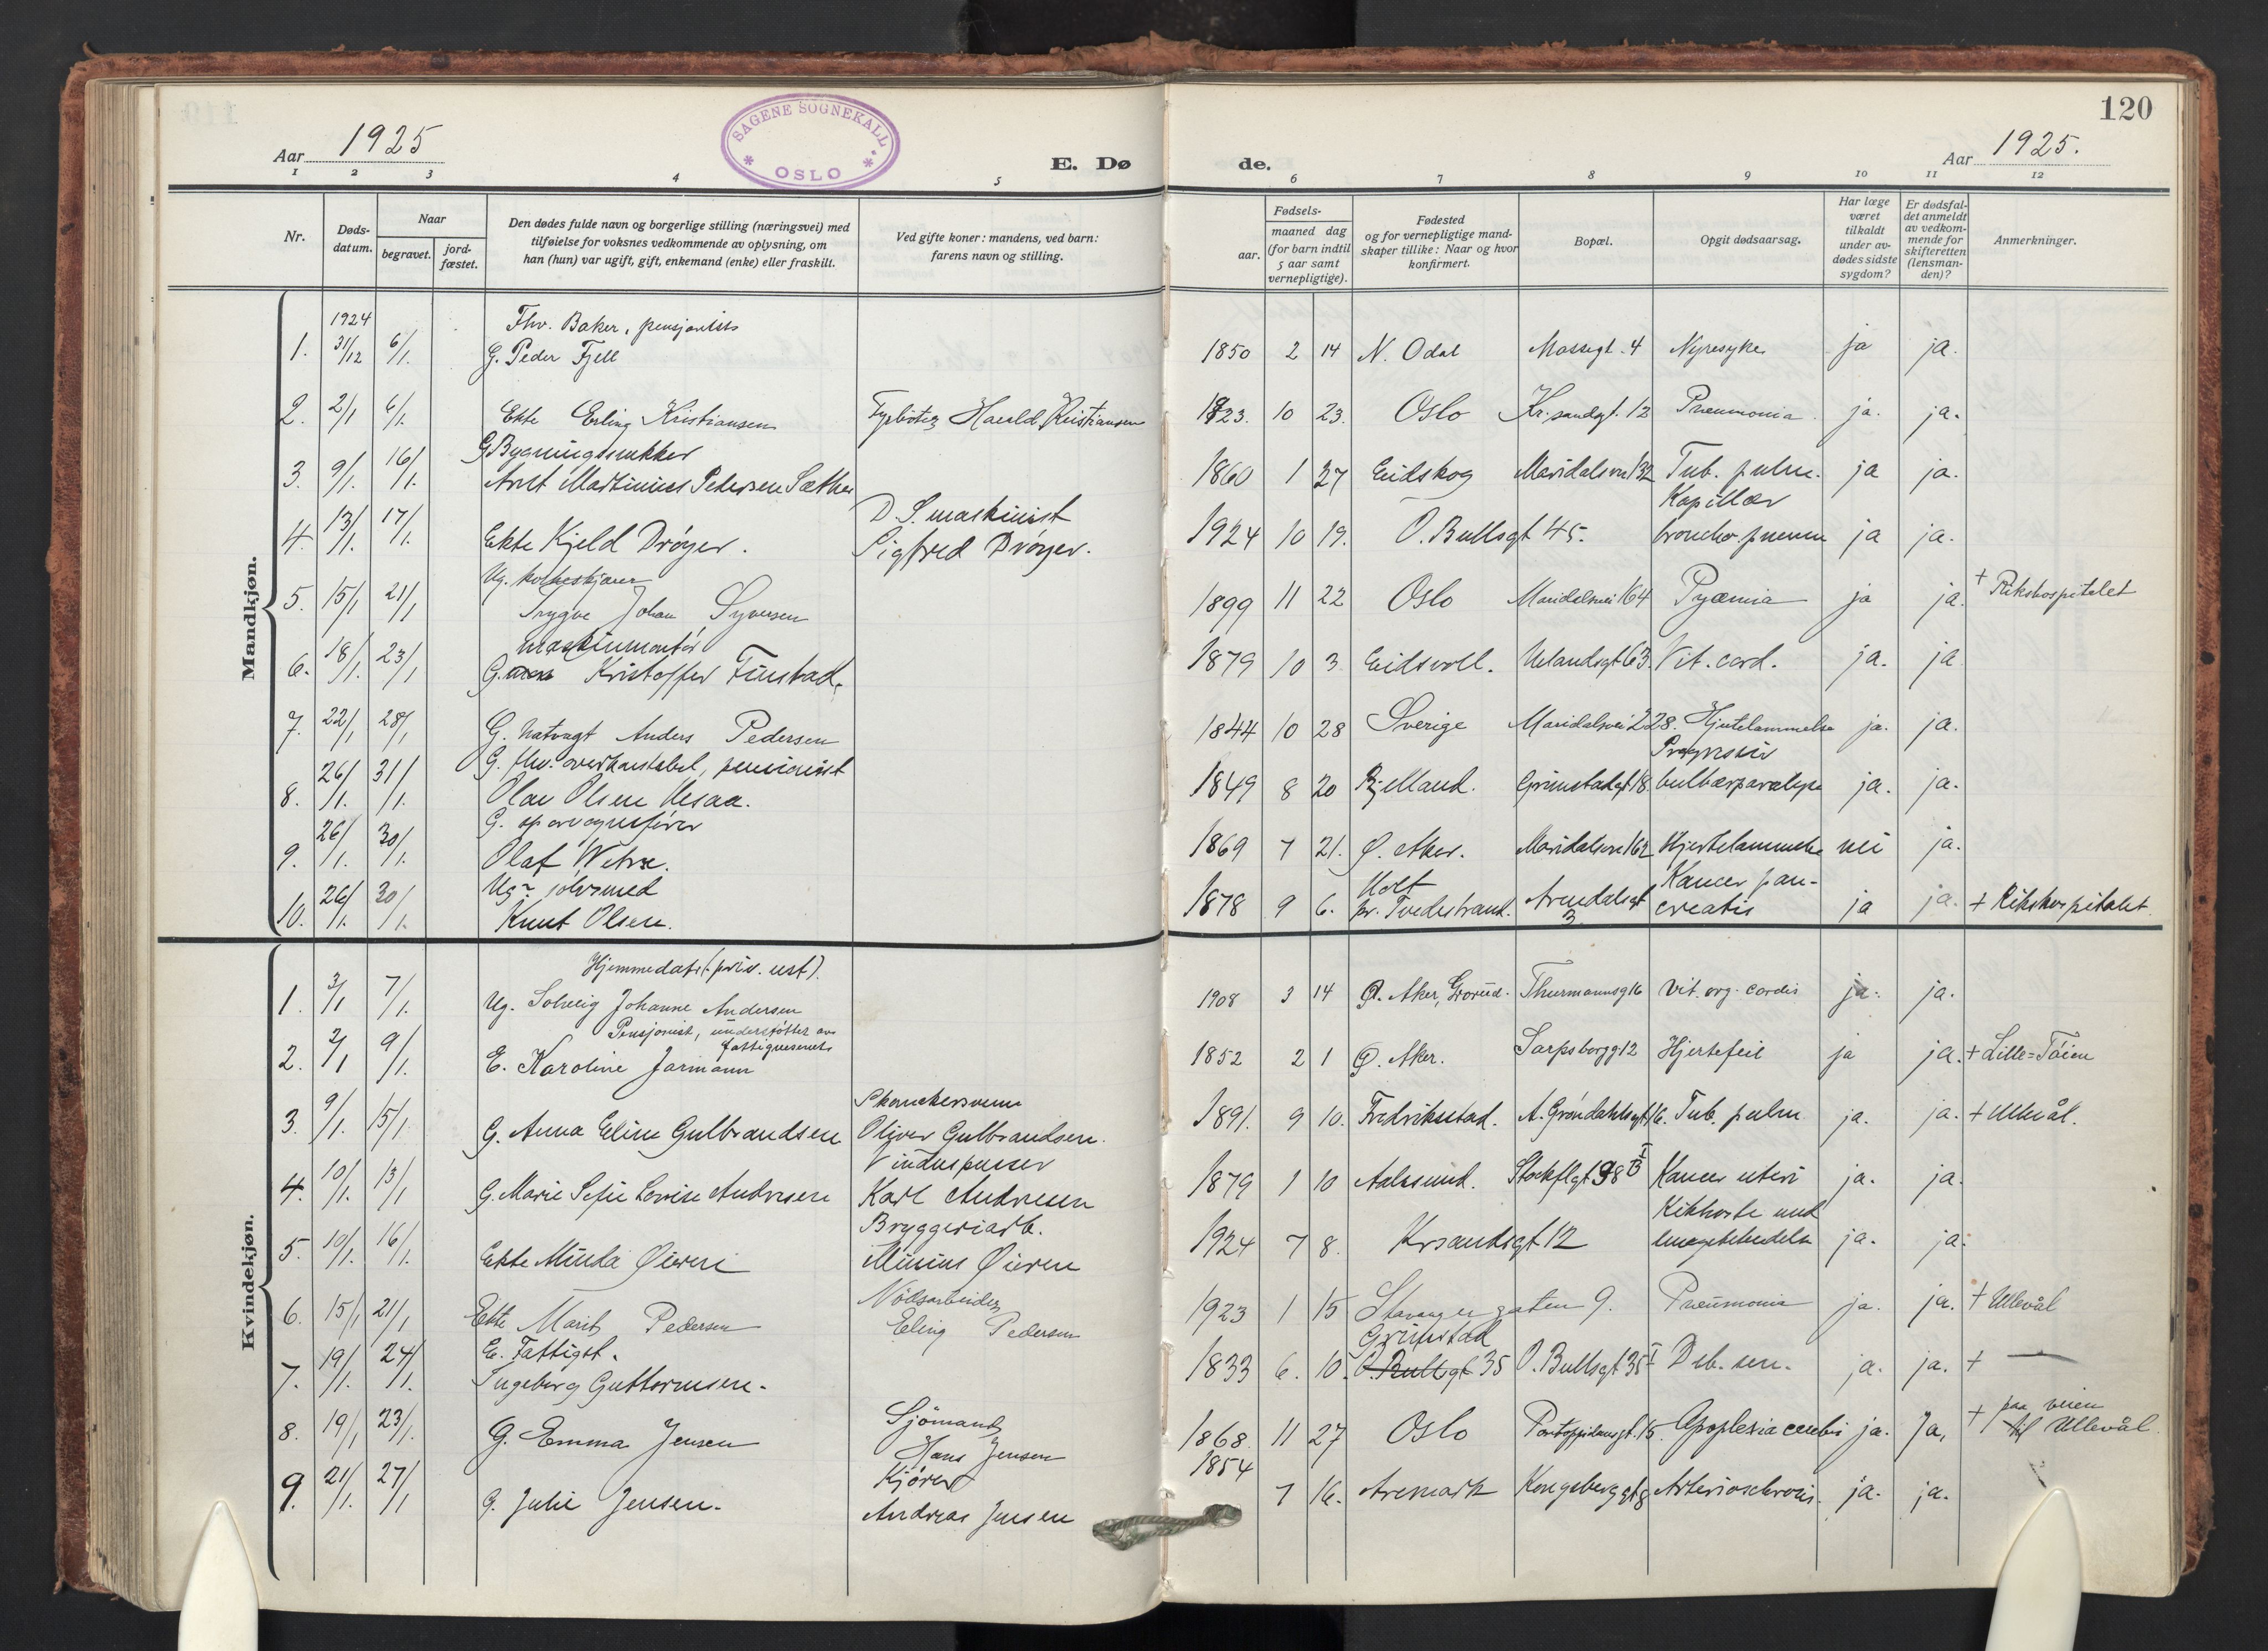 120
Aar 1925
SAGENE SOGNEKALL
OSLO
E. Dø
de.
Aar 1925.
1 2 3 4 5
6 7 8 9 10 11 12
Nr.
Døds-
datum.
Naar
begravet.
jord-
fæstet.
Den dødes fulde navn og borgerlige stilling (næringsvei) med
tilføielse for voksnes vedkommende av oplysning, om
han (hun) var ugift, gift, enkemand (enke) eller fraskilt.
Ved gifte koner: mandens, ved barn:
farens navn og stilling.
Fødsels-
aar.
maaned dag
(for barn indtil
5 aar samt
vernepligtige).
Fødested
og for vernepligtige mand-
skaper tillike: Naar og hvor
konfirmert.
Bopæl.
Opgit dødsaarsag.
Har læge
været
tilkaldt
under av-
dødes sidste
sygdom?
Er dødsfal-
det anmeldt
av vedkom-
mende for
skifteretten
(lensman-
den)?
Anmerkninger.
Mandkjøn.
1924 Fhv. Baker, pensjonist
1. 31/12 6/1. G. Peder Fjell 1850 2 14 N. Odal Mossegt. 4 Nyresyke ja ja.
2. 2/1 6/1. Ekte Erling Kristiansen Fyrbøter Harald Kristiansen 1923. 10 23. Oslo Kr.sandsgt. 12 Pneumonia ja. ja.
G Bygningssnekker
3. 9/1. 16/1. Arnt Martinius Pedersen Sæther 1860 1 27 Eidskog Maridalsvn 132 Tub. pulm. ja ja.
D.S. maskinist Kapillær
4. 13/1. 17/1. Ekte Kjeld Drøyer. Sigfred Drøyer. 1924 10 19. O. Bullsgt 45. broncho pneum ja ja.
Ug.
5. 15/1 21/1 Trygve Johan Syversen 1899 11 22 Oslo Maridalsvei 164 Pyæmia ja ja. + Rikshospitalet
maskinmontør
6. 18/1. 23/1 G. Kristoffer Finstad. 1879 10 3 Eidsvoll. Uelandsgt 63 Vit. cord. ja. ja
7. 22/1 28/1 G. Natvagt Anders Pedersen 1844 10 28 Sverige Maridalsvei 228. Hjertelammelse ja. ja.
G. fhv. overkonstabel, pensionist Progressiv
8. 26/1. 31/1. Olav Olsen Vesaa. 1849 8 20 Bjelland. Grimstadgt 18 bulbærparalyse ja. ja.
G. sporvognsfører
9. 26/1. 30/1. Olaf 1869 7 21. Ø. Aker. Maridalsvn 162 Hjertelammelse nei ja.
Ug. sølvsmed Holt Kancer pan-
10. 26/1. 30/1. Knut Olsen. 1878 9 6. pr. Tvedestrand. Arendalsgt 3. creatis ja ja. + Rikshospitalet.
Kvindekjøn.
Hjemmedatt. (priv. ust).
1. 3/1 7/1. Ug. Solveig Johanne Andersen 1908 3 14 Ø. Aker, Grorud. Thurmannsg 16 Vit. org. cordis ja. ja.
Pensjonist, understøttet av
fattigvesenet
2. 2/1 9/1. E. Karoline Jarmann 1852 2 1 Ø. Aker. Sarpsborgg 12 Hjertefeil ja ja. + Lille=Tøien
3. 9/1. 15/1 G. Anna Eline Gulbrandsen Oliver Gulbrandsen. 1891. 9 10. Fredriksstad. A. Grøndahlsgt 16. Tub. pulm ja. ja. + Ullevål.
Vinduspusser
4. 10/1. 13/1 G. Marie Sofie Lovise Andresen Karl Andresen 1879 1 10 Aalesund. Stockflgt 38 I/B Kancer uteri ja. ja.
Bryggeriarb. Kikhoste med
5. 10/1. 16/1. Ekte Minda Øieren Minius Øieren 1924 7 8. Krsandsgt 12 lungebetendelse ja. ja.
Nødsarbeider
6. 15/1 21/1 Ekte Marit Pedersen Erling Pedersen 1923 1 15 Stavangergaten 9. Pneumonia ja. ja. + Ullevål
E. Fattigst. Grimstad
7. 19/1. 24/1. Ingeborg Guttormsen. 1833 6. 10. O. Bullsgt 35 O. Bullsgt 35 I Deb. sen. ja. ja. + —
Sjømand paa veien
8. 19/1 23/1. G. Emma Jensen Hans Jensen 1868. 11 27 Oslo Pontoppidansgt. 15. Apoplexia cerebri ja. Ja, + til Ullevål.
Kjører 1854
9. 21/1. 27/1 G. Julie Jensen. Andreas Jensen 7 16. Aremark Kongsberggt 8 Arterioschrosis. ja. ja.